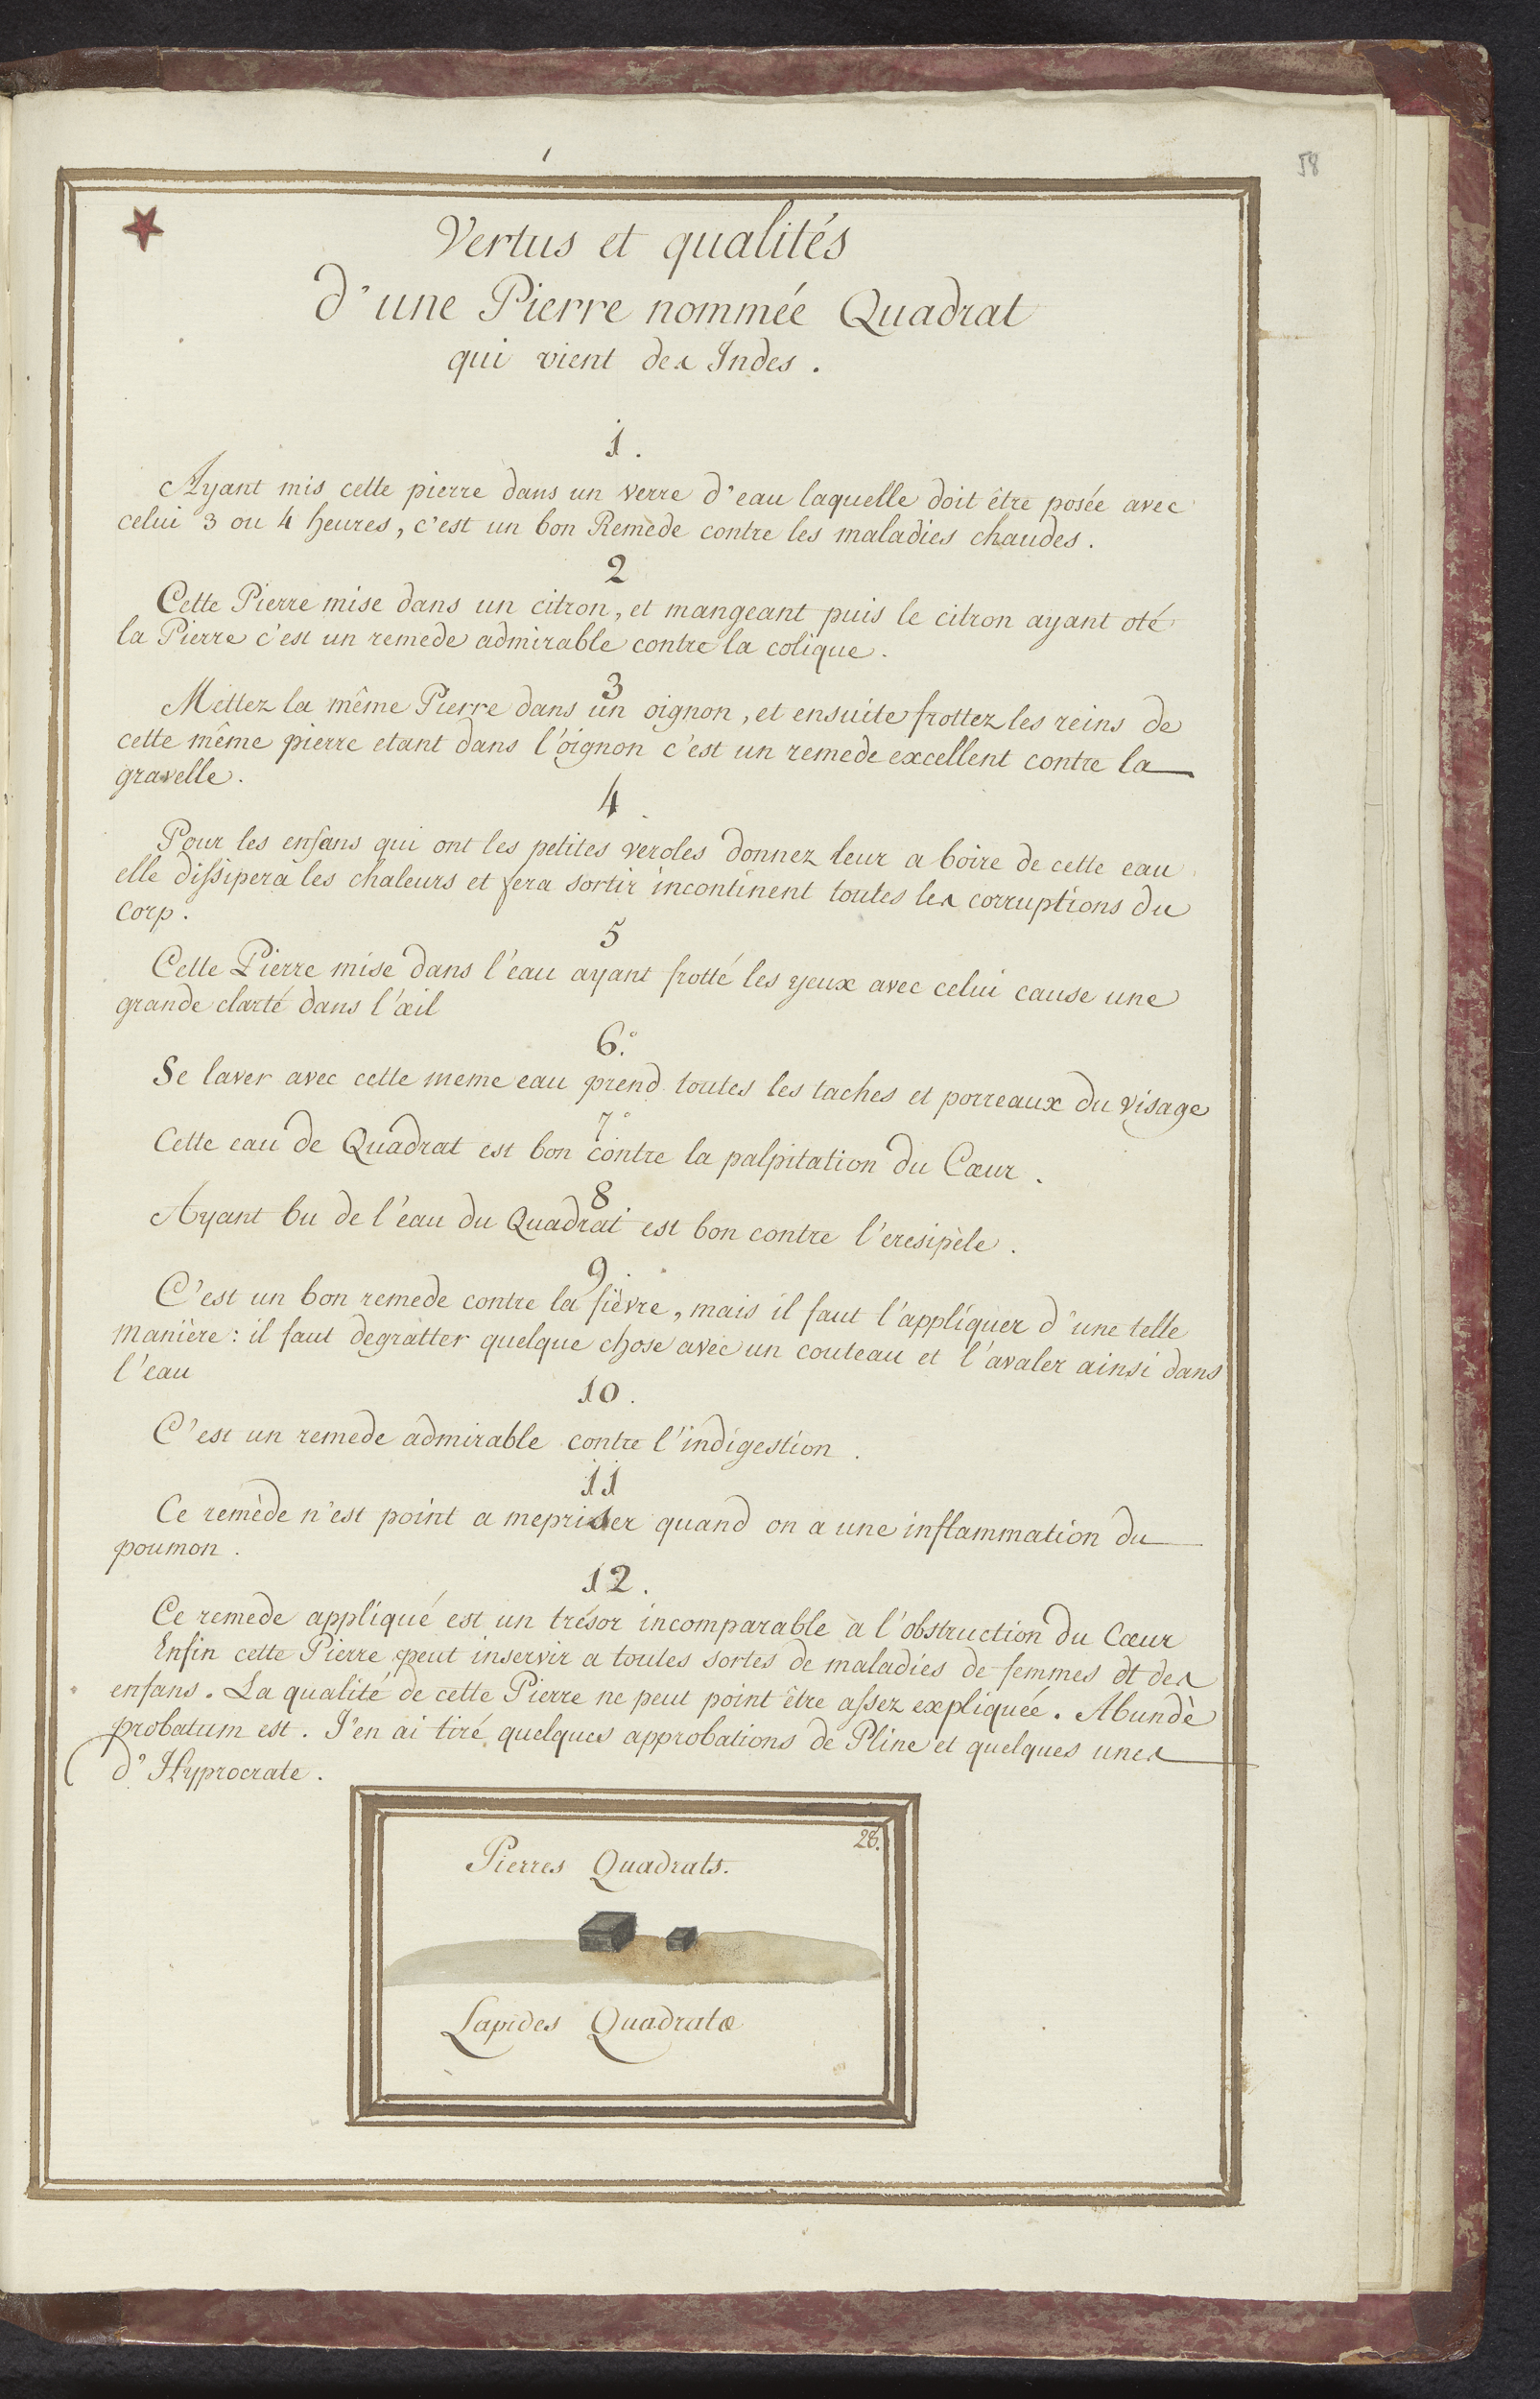 58
Vertus et qualités
d'une Pierre nommée Quadrat
qui vient des Indes.
1.
Ayant mis cette pierre dans un verre d'eau laquelle doit être posée avec
celui 3 ou 4 heures, c'est un bon Remede contre les maladies chaudes.
2
Cette Pierre mise dans un citron, et mangeant puis le citron ayant oté
la Pierre c'est un remede admirable contre la colique.
3
Mettez la même Pierre dans un oignon, et ensuite frottez les reins de
cette même pierre etant dans l'oignon c'est un remede excellent contre la
gravelle.
4
Pour les enfans qui ont les petites veroles donnez leur a boire de cette eau
elle dissipera les chaleurs et fera sortir incontinent toutes les corruptions du
corp.
5
Cette Pierre mise dans l'eau ayant frotté les yeux avec celui cause une
grande clarté dans l'œil
6.°
Se laver avec cette meme eau prend toutes les taches et porreaux du visage
7°
Cette eau de Quadrat est bon contre la palpitation du Cœur.
8
Ayant bu de l'eau du Quadrat est bon contre l'eresipèle.
9
C'est un bon remede contre la fièvre, mais il faut l'appliquer d'une telle
manière: il faut degratter quelque chose avec un couteau et l'avaler ainsi dans
l'eau
10.
C'est un remede admirable contre l'indigestion.
11
Ce remède n'est point a mepriser quand on a une inflammation du
poumon.
12.
Ce remede appliqué est un trésor incomparable à l'obstruction du Cœur
Enfin cette Pierre peut inservir a toutes sortes de maladies de femmes et des
enfans. La qualité de cette Pierre ne peut point être assez expliquée. Abundè
probatum est. J'en ai tiré quelques approbations de Pline et quelques unes
d'Hyprocrate.
28.
Pierres Quadrats.
Lapides Quadratæ